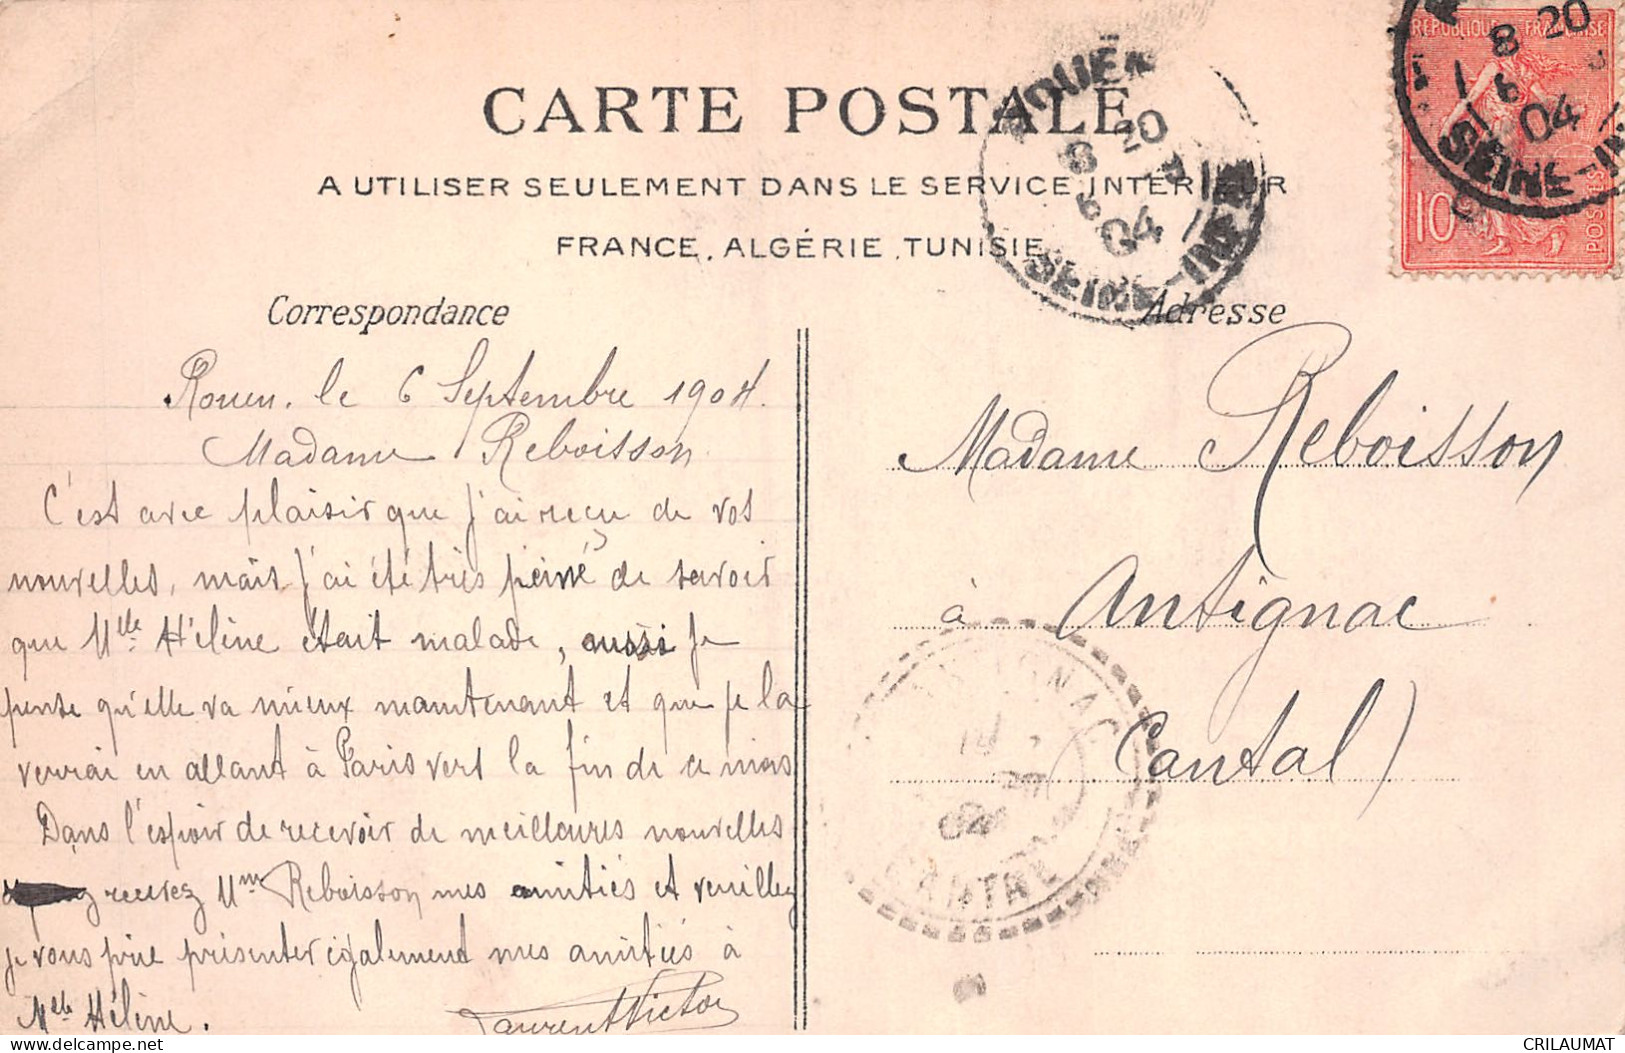 CARTE POSTALE
A UTILISER SEULEMENT DANS LE SERVICE INTÉRIEUR
FRANCE, ALGÉRIE, TUNISIE
RÉPUBLIQUE FRANÇAISE
10
POSTES
8 20
6
04
SEINE-IN
ROUEN
8 20
6 9
04
SEINE-INFRE
Correspondance
Rouen, le 6 Septembre 1904.
Madame Reboisson
C'est avec plaisir que j'ai reçu de vos
nouvelles, mais j'ai été très peiné de savoir
que Mlle Hélène était malade, aussi je
pense qu'elle va mieux maintenant et que je la
verrai en allant à Paris vers la fin de ce mois
Dans l'espoir de recevoir de meilleures nouvelles
recevez Mme Reboisson mes amitiés et veuillez
je vous prie présenter également mes amitiés à
Mlle Hélène.
Laurent Victor
Adresse
Madame Reboisson
à Antignac
(Cantal)
ANTIGNAC
04
CRILAUMAT